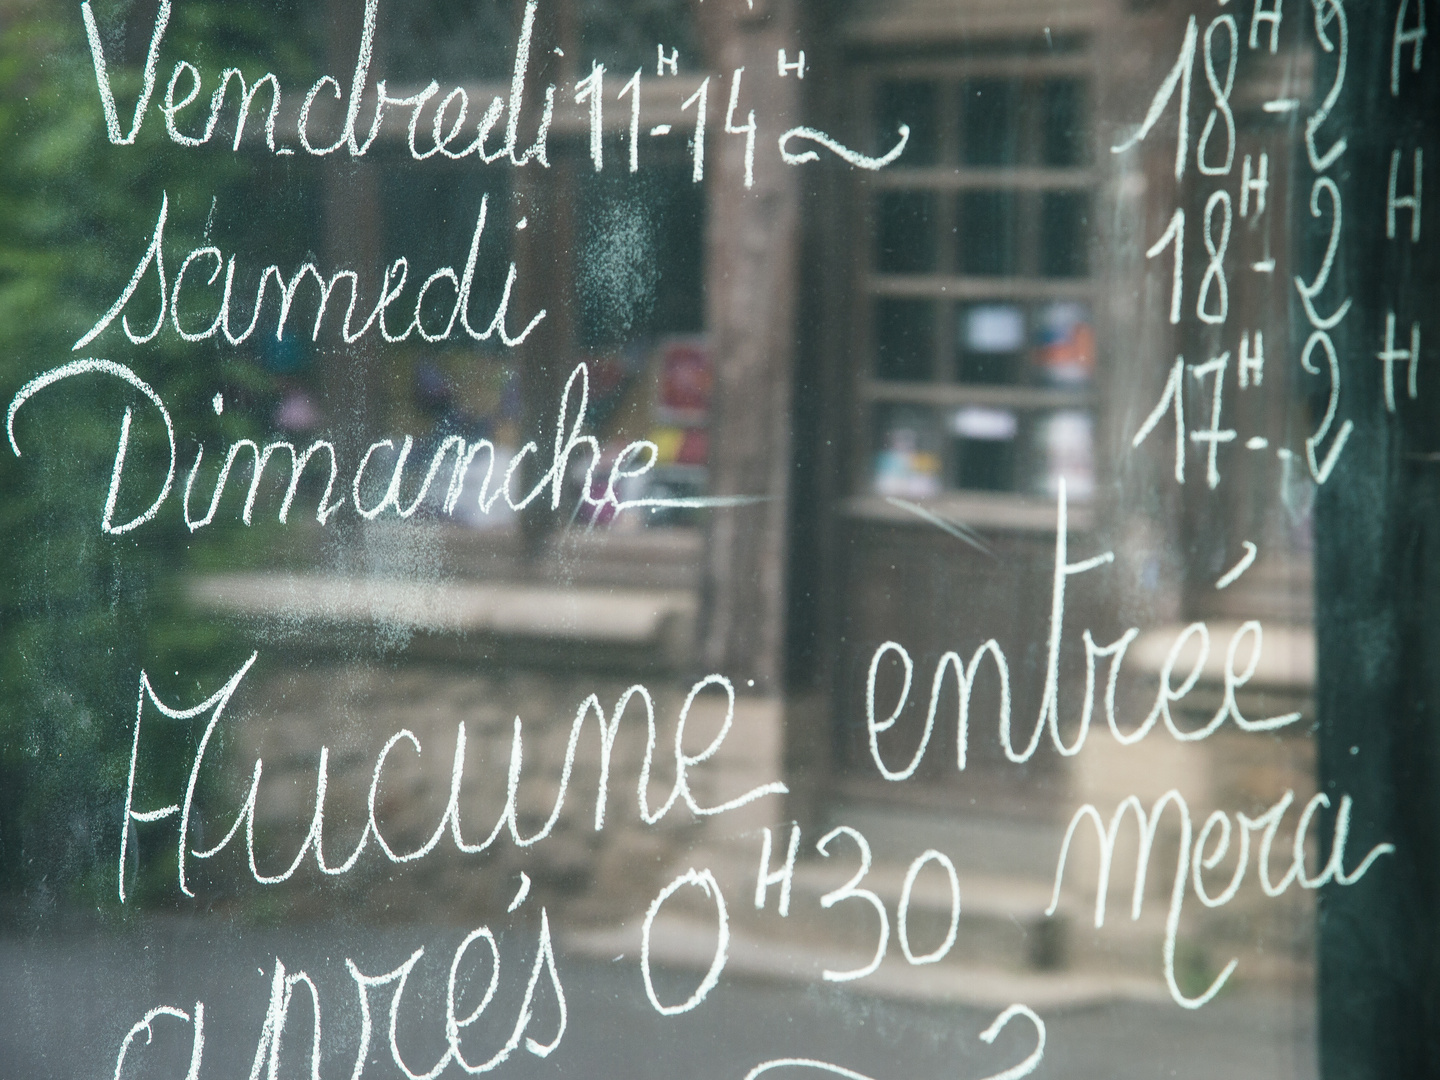 Vendredi 11H-14H ~ 18H-2H
Samedi 18H-2H
Dimanche 17H-2H
Aucune entrée
aprés 0H30 Merci